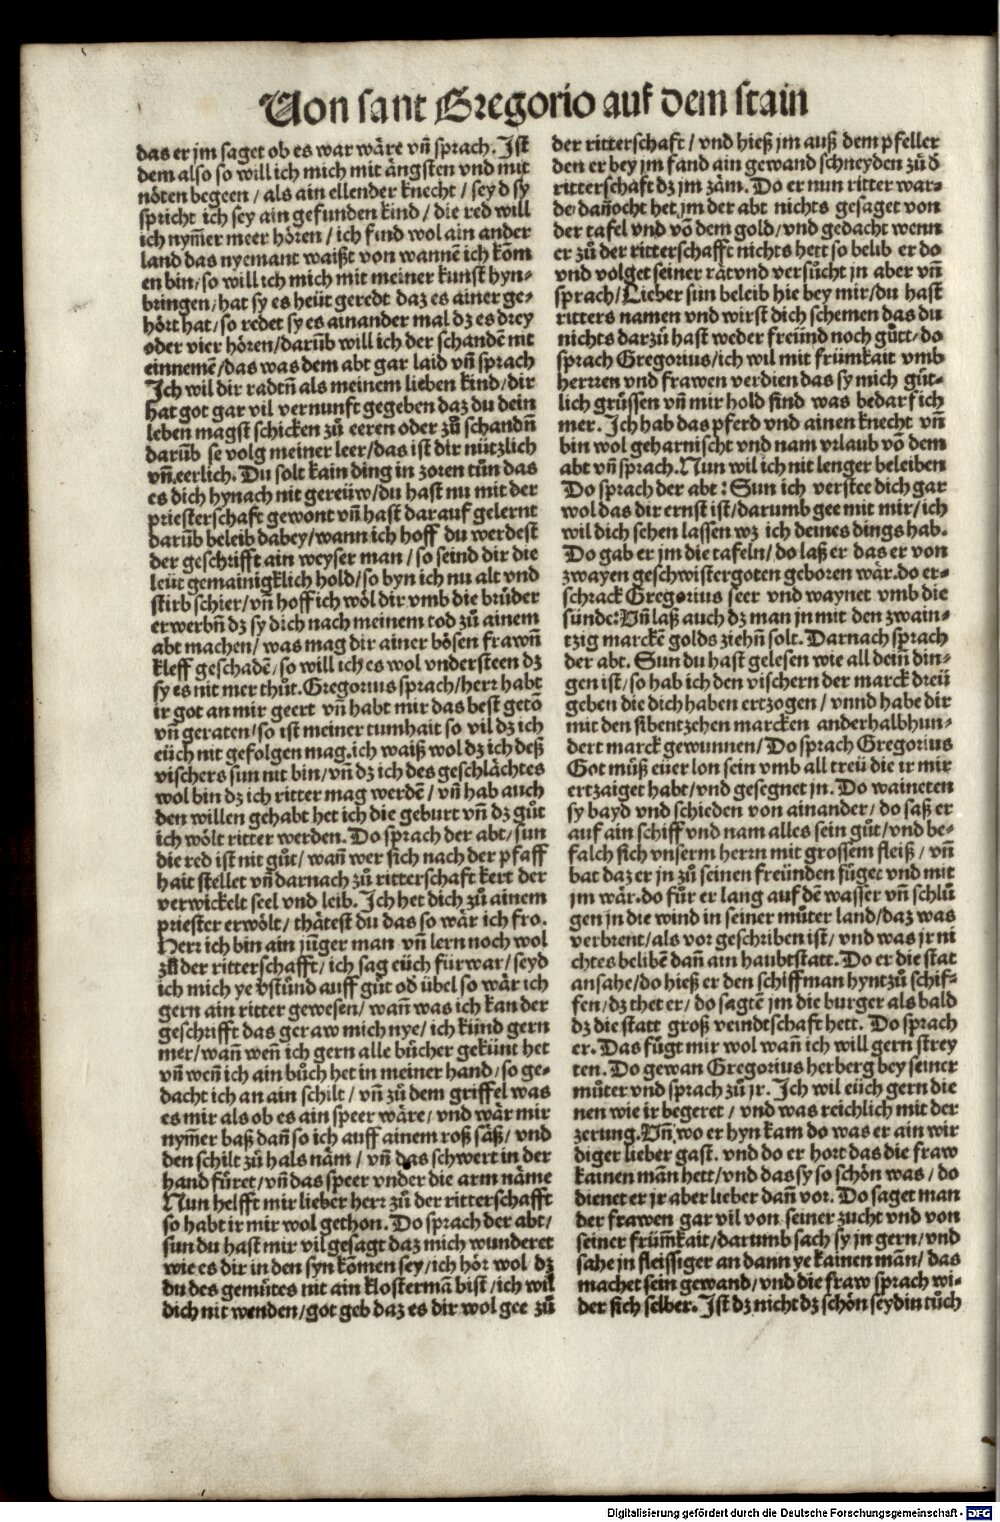 Von sant Gregorio auf dem stain
das er jm saget ob es war wäre vñ sprach. Ist
dem also so will ich mich mit ängsten vnd mit
nöten begeen / als ain ellender knecht / seyd sy
spricht ich sey ain gefunden kind / die red will
ich nym̃er meer hören / ich find wol ain ander
land das nyemant waißt von wannẽ ich kõm
en bin / so will ich mich mit meiner kunst hyn⸗
bringen / hat sy es heüt geredt daz es ainer ge⸗
hört hat / so redet sy es ainander mal dz es drey
oder vier hören / darũb will ich der schandẽ nit
einnemẽ / das was dem abt gar laid vñ sprach
Ich wil dir radtñ als meinem lieben kind / dir
hat got gar vil vernunft gegeben daz du dein
leben magst schicken zů eeren oder zů schandñ
darũb se volg meiner leer / das ist dir nützlich
vñ eerlich. Du solt kain ding in zoren tůn das
es dich hynach nit gereüw / du hast nu mit der
priesterschaft gewont vñ hast darauf gelernt
darũb beleib dabey / wann ich hoff du werdest
der geschrifft ain weyser man / so seind dir die
leüt gemainigklich hold / so byn ich nu alt vnd
stirb schier / vñ hoff ich wöl dir vmb die brüder
erwerbñ dz sy dich nach meinem tod zů ainem
abt machen / was mag dir ainer bösen frawñ
kleff geschadẽ / so will ich es wol vndersteen dz
sy es nit mer thůt. Gregorius sprach / herr habt
ir got an mir geert vñ habt mir das best getõ
vñ geraten / so ist meiner tumhait so vil dz ich
eüch nit gefolgen mag. ich waiß wol dz ich deß
vischers sun nit bin / vñ dz ich des geschlächtes
wol bin dz ich ritter mag werdẽ / vñ hab auch
den willen gehabt het ich die geburt vñ dz gůt
ich wölt ritter werden. Do sprach der abt / sun
die red ist nit gůt / wañ wer sich nach der pfaff
hait stellet vñ darnach zů ritterschaft kert der
verwickelt seel vnd leib. Ich het dich zů ainem
priester erwölt / thätest du das so wär ich fro.
Herr ich bin ain jũger man vñ lern noch wol
zů der ritterschafft / ich sag eüch fürwar / seyd
ich mich ye v̈stůnd auff gůt od̾ übel so wär ich
gern ain ritter gewesen / wañ was ich kan der
geschrifft das geraw mich nye / ich kũnd gern
mer / wañ weñ ich gern alle bücher gekünt het
vñ weñ ich ain bůch het in meiner hand / so ge⸗
dacht ich an ain schilt / vñ zů dem griffel was
es mir als ob es ain speer wäre / vnd wär mir
nym̃er baß dañ so ich auff ainem roß säß / vnd
den schilt zů hals näm / vñ das schwert in der
hand füret / vñ das speer vnder die arm näme
Nun helfft mir lieber herr zů der ritterschafft
so habt ir mir wol gethon. Do sprach der abt /
sun du hast mir vil gesagt daz mich wunderet
wie es dir in den syn kõmen sey / ich hör wol dz
du des gemütes nit ain klostermã bist / ich wil
dich nit wenden / got geb daz es dir wol gee zů
der ritterschaft / vnd hieß jm auß dem pfeller
den er bey jm fand ain gewand schneyden zů d̾
ritterschaft dz jm zäm. Do er nun ritter war⸗
de dañocht het jm der abt nichts gesaget von
der tafel vnd võ dem gold / vnd gedacht wenn
er zů der ritterschafft nichts hett so belib er do
vnd volget seiner rät vnd versůcht jn aber vñ
sprach / Lieber sun beleib hie bey mir / du hast
ritters namen vnd wirst dich schemen das du
nichts darzů hast weder freünd noch gůtt / do
sprach Gregorius / ich wil mit frümkait vmb
herrren vnd frawen verdien das sy mich güt⸗
lich grüssen vñ mir hold sind was bedarf ich
mer. Ich hab das pferd vnd ainen knecht vñ
bin wol geharnischt vnd nam vrlaub võ dem
abt vñ sprach. Nun wil ich nit lenger beleiben
Do sprach der abt : Sun ich verstee dich gar
wol das dir ernst ist / darumb gee mit mir / ich
wil dich sehen lassen wz ich deines dings hab.
Do gab er jm die tafeln / do laß er das er von
zwayen geschwistergoten geboren wär. do er⸗
schrack Gregorius seer vnd waynet vmb die
sünde: Vñ laß auch dz man jn mit den zwain⸗
tzig marckẽ golds ziehñ solt. Darnach sprach
der abt. Sun du hast gelesen wie all deiñ din⸗
gen ist / so hab ich den vischern der marck dreü
geben die dich haben ertzogen / vnnd habe dir
mit den sibentzehen marcken anderhalbhun⸗
dert marck gewunnen / Do sprach Gregorius
Got můß eüer lon sein vmb all treü die ir mir
ertzaiget habt / vnd gesegnet jn. Do waineten
sy bayd vnd schieden von ainander / do saß er
auf ain schiff vnd nam alles sein gůt / vnd be⸗
falch sich vnserm herrn mit grossem fleiß / vñ
bat daz er jn zů seinen freünden füget vnd mit
jm wär. do für er lang auf dẽ wasser vñ schlů
gen jn die wind in seiner můter land / daz was
verbrent / als vor geschriben ist / vnd was jr ni
chtes belibẽ dañ ain haubtstatt. Do er die stat
ansahe / do hieß er den schiffman hyntzů schif⸗
fen / dz thet er / do sagtẽ jm die burger als bald
dz die statt groß veindtschaft hett. Do sprach
er. Das fůgt mir wol wañ ich will gern strey
ten. Do gewan Gregorius herberg bey seiner
můter vnd sprach zů jr. Ich wil eüch gern die
nen wie ir begeret / vnd was reichlich mit der
zerung. Vñ wo er hyn kam do was er ain wir
diger lieber gast. vnd do er hort das die fraw
kainen mãn hett / vnd das sy so schön was / do
dienet er jr aber lieber dañ vor. Do saget man
der frawen gar vil von seiner zucht vnd von
seiner früm̃kait / darumb sach sy jn gern / vnd
sahe jn fleissiger an dann ye kainen mãn / das
machet sein gewand / vnd die fraw sprach wi⸗
der sich selber. Ist dz nicht dz schön seydin tůch
Digitalisierung gefördert durch die Deutsche Forschungsgemeinschaft - DFG